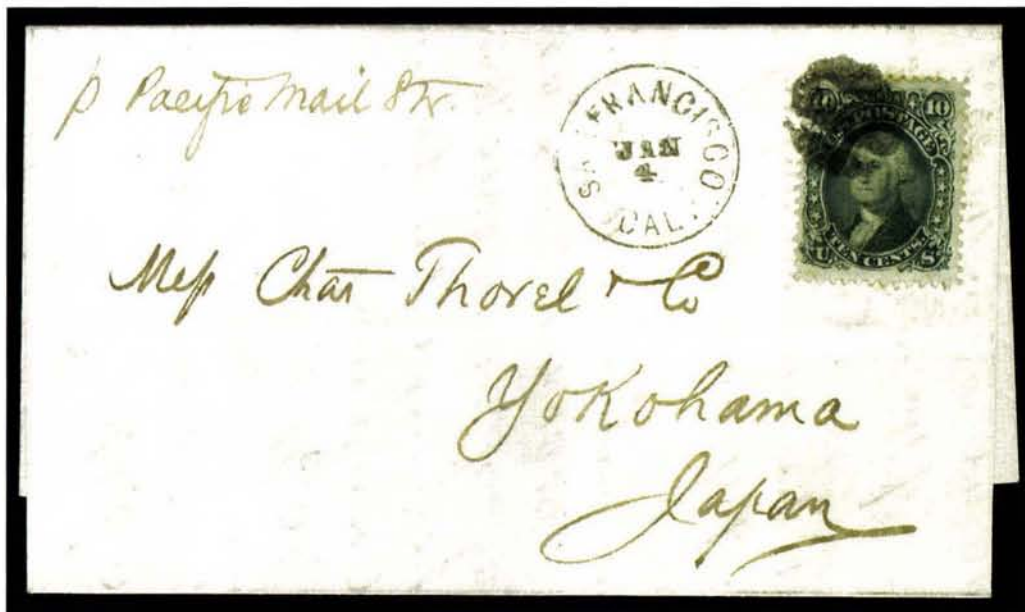 p Pacific Mail Str.
SAN FRANCISCO
JAN
4
CAL.
10 10
U.S. POSTAGE
TEN CENTS.
U S
Mess Chas Thorel & Co
Yokohama
Japan